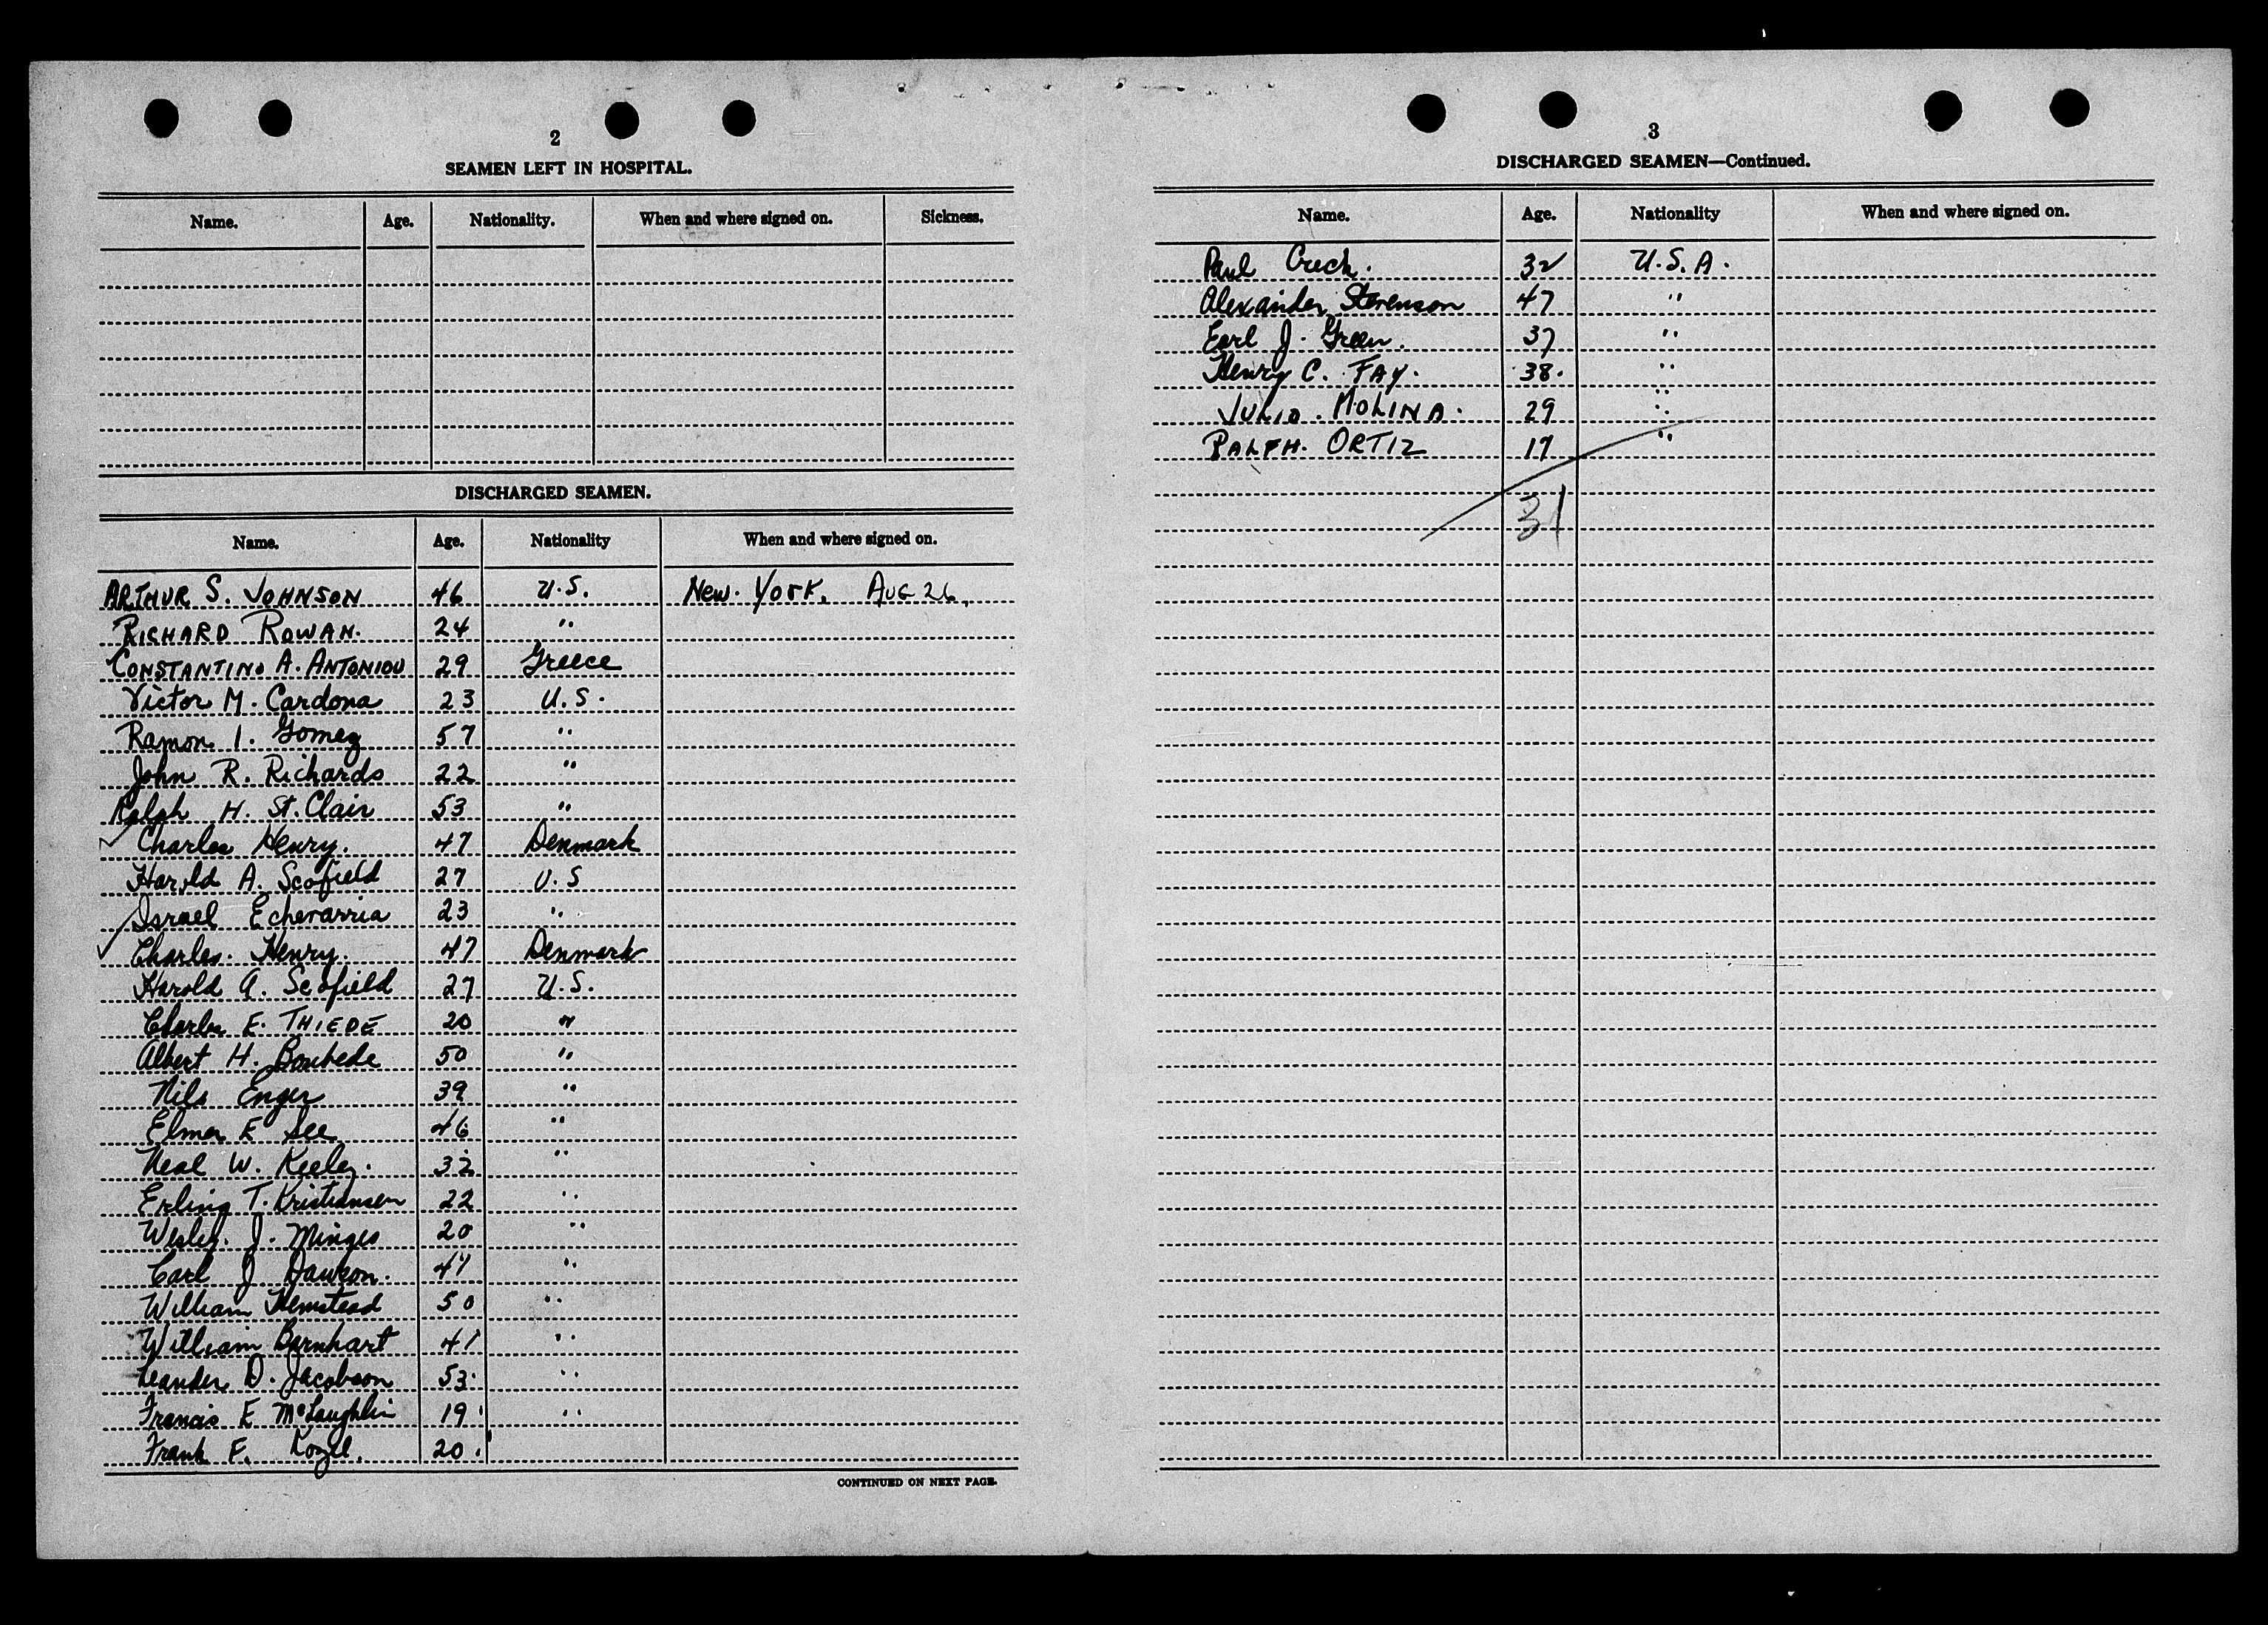 2
SEAMEN LEFT IN HOSPITAL.
Name. Age. Nationality. When and where signed on. Sickness.
DISCHARGED SEAMEN.
Name. Age. Nationality When and where signed on.
ARTHUR S. JOHNSON 46 U.S. New York. AUG 26.
RICHARD ROWAN. 24 "
CONSTANTINO A. ANTONIOU 29 Greece
Victor M. Cardona 23 U.S.
Ramon I. Gomez 57 "
John R. Richards 22 "
Ralph H. St. Clair 53 "
Charles Henry. 47 Denmark
Harold A. Scofield 27 U.S
Israel Echevarria 23 "
Charles. Henry. 47 Denmark
Harold A. Scofield 27 U.S.
Charles E. THIEDE 20 "
Albert H. 50 "
Nils Enger 39 "
Elmer E See 46 "
Neal W. Keeley. 32 "
Erling T. Kristiansen 22 "
Wesley. J. Minges 20 "
Carl J Dawson. 41 "
William Hemstead 50 "
William Barnhart 41 "
Leander D. Jacobson 53. "
Francis E McLaughlin 19. "
Frank F. Kozel. 20.
CONTINUED ON NEXT PAGE.
3
DISCHARGED SEAMEN—Continued.
Name. Age. Nationality When and where signed on.
Paul Crech. 32 U.S.A.
Alexander Stevenson 47 "
Earl J. Green. 37 "
Henry C. FAY. 38. "
JULIO. MOLINA. 29 "
RALPH. ORTIZ 17 "
31